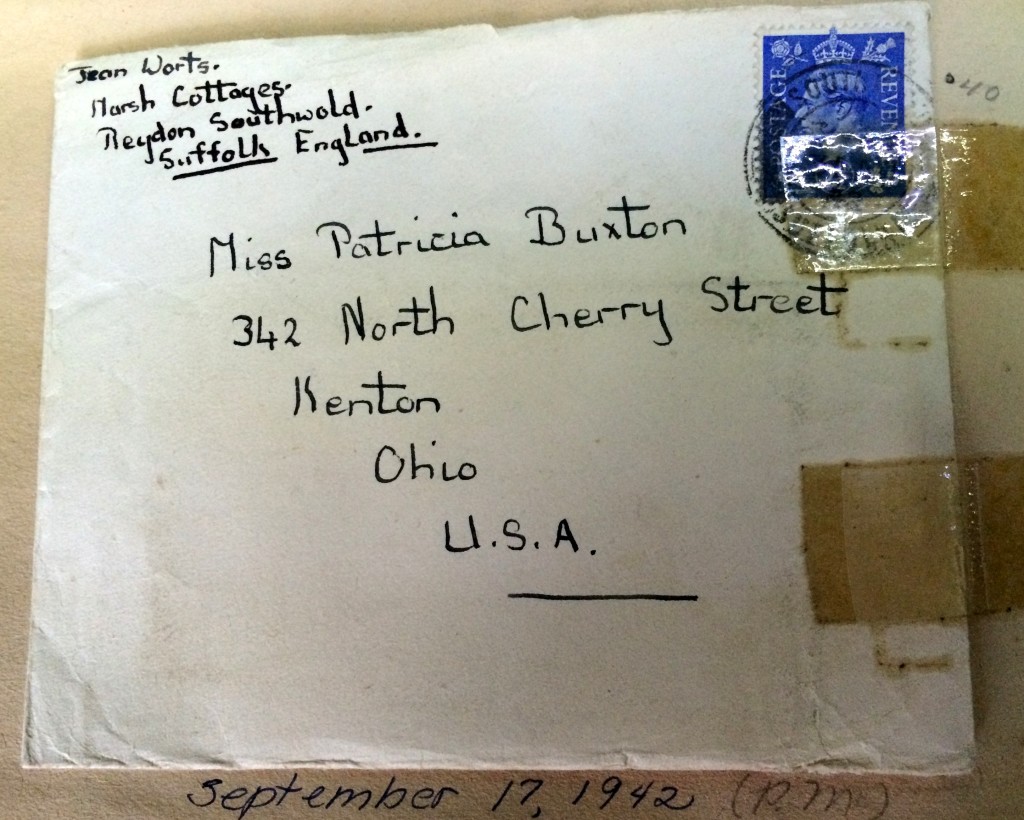 Jean Worts.
Marsh Cottages.
Reydon Southwold.
Suffolk England.
POSTAGE REVEN
SOUTH
40
Miss Patricia Buxton
342 North Cherry Street
Kenton
Ohio
U.S.A.
September 17, 1942 (P.M.)